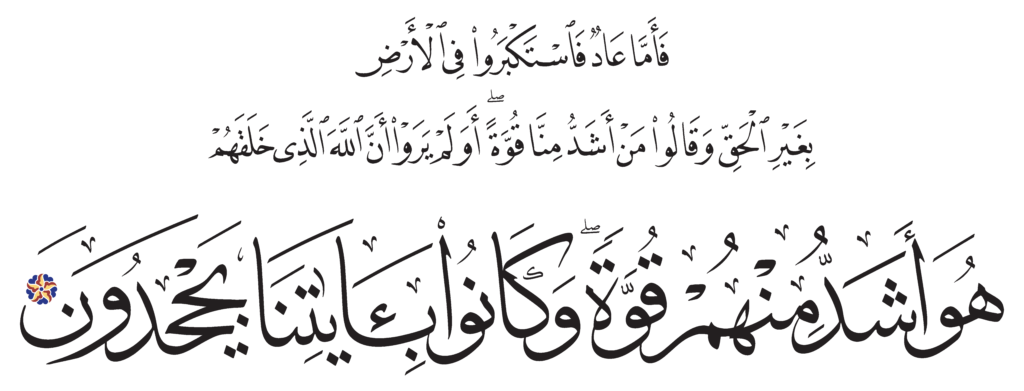 فَأَمَّا عَادٌ فَٱسْتَكْبَرُوا۟ فِى ٱلْأَرْضِ
بِغَيْرِ ٱلْحَقِّ وَقَالُوا۟ مَنْ أَشَدُّ مِنَّا قُوَّةً ۖ أَوَلَمْ يَرَوْا۟ أَنَّ ٱللَّهَ ٱلَّذِى خَلَقَهُمْ
هُوَ أَشَدُّ مِنْهُمْ قُوَّةً ۖ وَكَانُوا۟ بِـَٔايَـٰتِنَا يَجْحَدُونَ